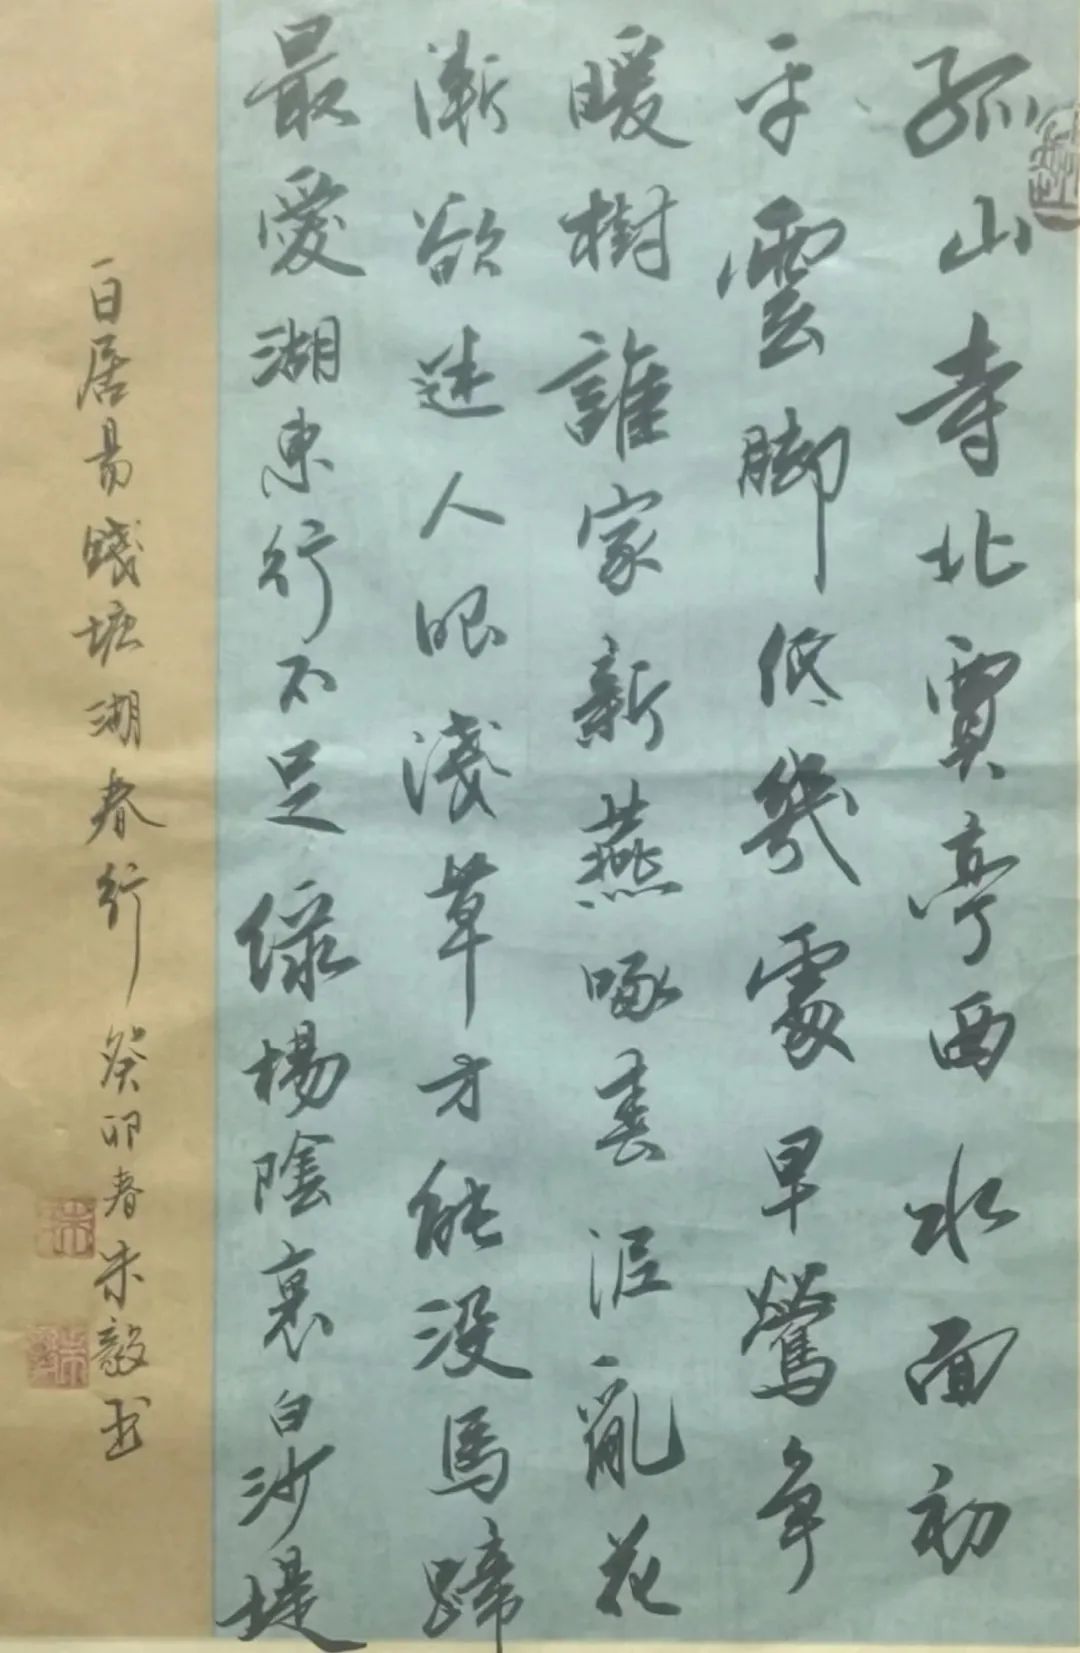 孤山寺北賈亭西水面初
平雲脚低幾處早鶯争
暖樹誰家新燕啄春泥亂花
漸欲迷人眼淺草才能没馬蹄
最愛湖東行不足綠楊陰裏白沙堤
白居易錢塘湖春行癸卯春朱毅书